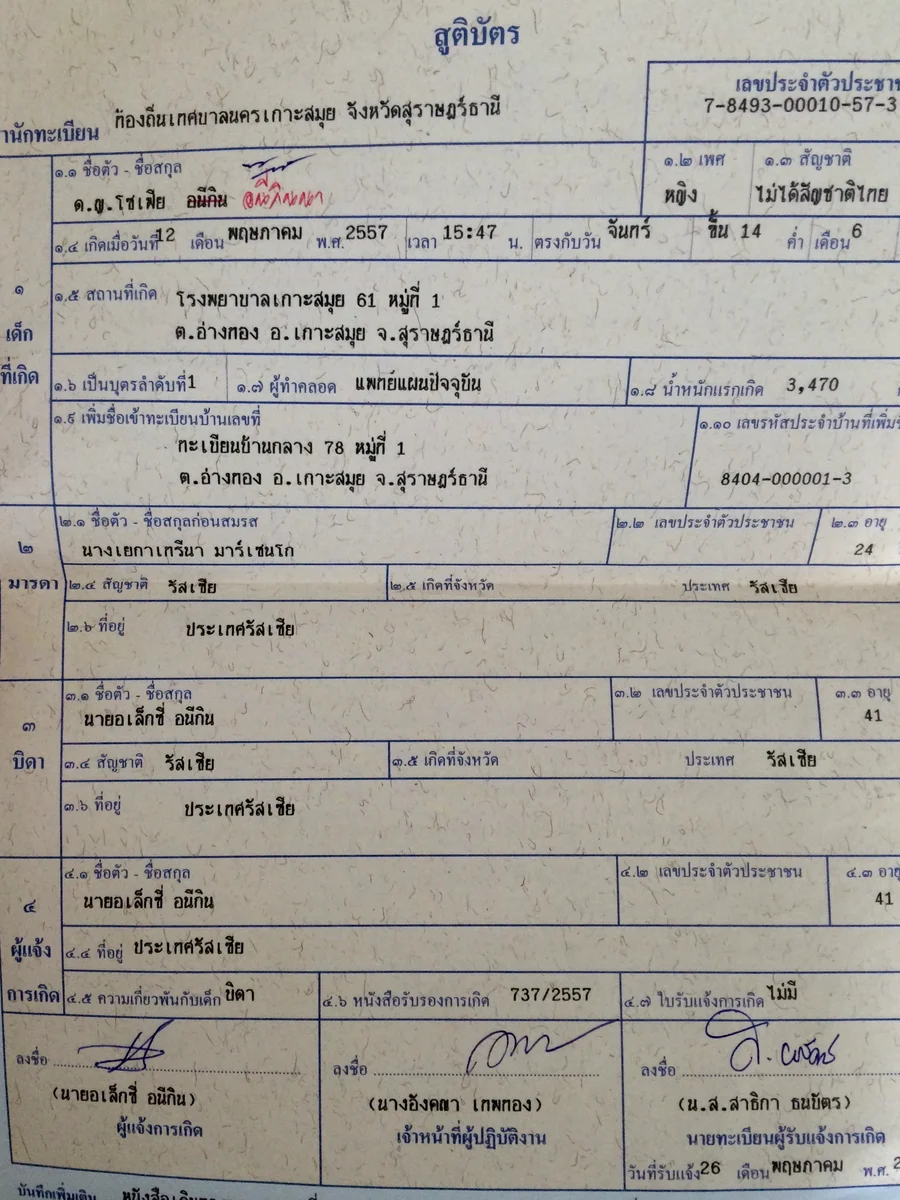 สูติบัตร
เลขประจำตัวประชาช
7-8493-00010-57-3
านักทะเบียน ท้องถิ่นเทศบาลนครเกาะสมุย จังหวัดสุราษฎร์ธานี
๑.๑ ชื่อตัว - ชื่อสกุล
ด.ญ.โซเฟีย อนีกิน
๑.๒ เพศ
หญิง
๑.๓ สัญชาติ
ไม่ได้สัญชาติไทย
๑.๔ เกิดเมื่อวันที่ 12 เดือน พฤษภาคม พ.ศ. 2557 เวลา 15:47 น. ตรงกับวัน จันทร์ ขึ้น 14 ค่ำ เดือน 6
๑
เด็ก
ที่เกิด
๑.๕ สถานที่เกิด โรงพยาบาลเกาะสมุย 61 หมู่ที่ 1
ต.อ่างทอง อ.เกาะสมุย จ.สุราษฎร์ธานี
๑.๖ เป็นบุตรลำดับที่ 1 ๑.๗ ผู้ทำคลอด แพทย์แผนปัจจุบัน ๑.๘ น้ำหนักแรกเกิด 3,470
๑.๙ เพิ่มชื่อเข้าทะเบียนบ้านเลขที่
ทะเบียนบ้านกลาง 78 หมู่ที่ 1
ต.อ่างทอง อ.เกาะสมุย จ.สุราษฎร์ธานี
๑.๑๐ เลขรหัสประจำบ้านที่เพิ่มชื่
8404-000001-3
๒
มารดา
๒.๑ ชื่อตัว - ชื่อสกุลก่อนสมรส
นางเยกาเทรีนา มาร์เชนโก
๒.๒ เลขประจำตัวประชาชน
๒.๓ อายุ
24
๒.๔ สัญชาติ รัสเซีย ๒.๕ เกิดที่จังหวัด ประเทศ รัสเซีย
๒.๖ ที่อยู่ ประเทศรัสเซีย
๓
บิดา
๓.๑ ชื่อตัว - ชื่อสกุล
นายอเล็กซี่ อนีกิน
๓.๒ เลขประจำตัวประชาชน
๓.๓ อายุ
41
๓.๔ สัญชาติ รัสเซีย ๓.๕ เกิดที่จังหวัด ประเทศ รัสเซีย
๓.๖ ที่อยู่ ประเทศรัสเซีย
๔
ผู้แจ้ง
การเกิด
๔.๑ ชื่อตัว - ชื่อสกุล
นายอเล็กซี่ อนีกิน
๔.๒ เลขประจำตัวประชาชน
๔.๓ อายุ
41
๔.๔ ที่อยู่ ประเทศรัสเซีย
๔.๕ ความเกี่ยวพันกับเด็ก บิดา ๔.๖ หนังสือรับรองการเกิด 737/2557 ๔.๗ ใบรับแจ้งการเกิด ไม่มี
ลงชื่อ
(นายอเล็กซี่ อนีกิน)
ผู้แจ้งการเกิด
ลงชื่อ
(นางอังคณา เทพทอง)
เจ้าหน้าที่ผู้ปฏิบัติงาน
ลงชื่อ
(น.ส.สาธิกา ธนบัตร)
นายทะเบียนผู้รับแจ้งการเกิด
วันที่รับแจ้ง 26 เดือน พฤษภาคม พ.ศ. 2
บันทึกเพิ่มเติม